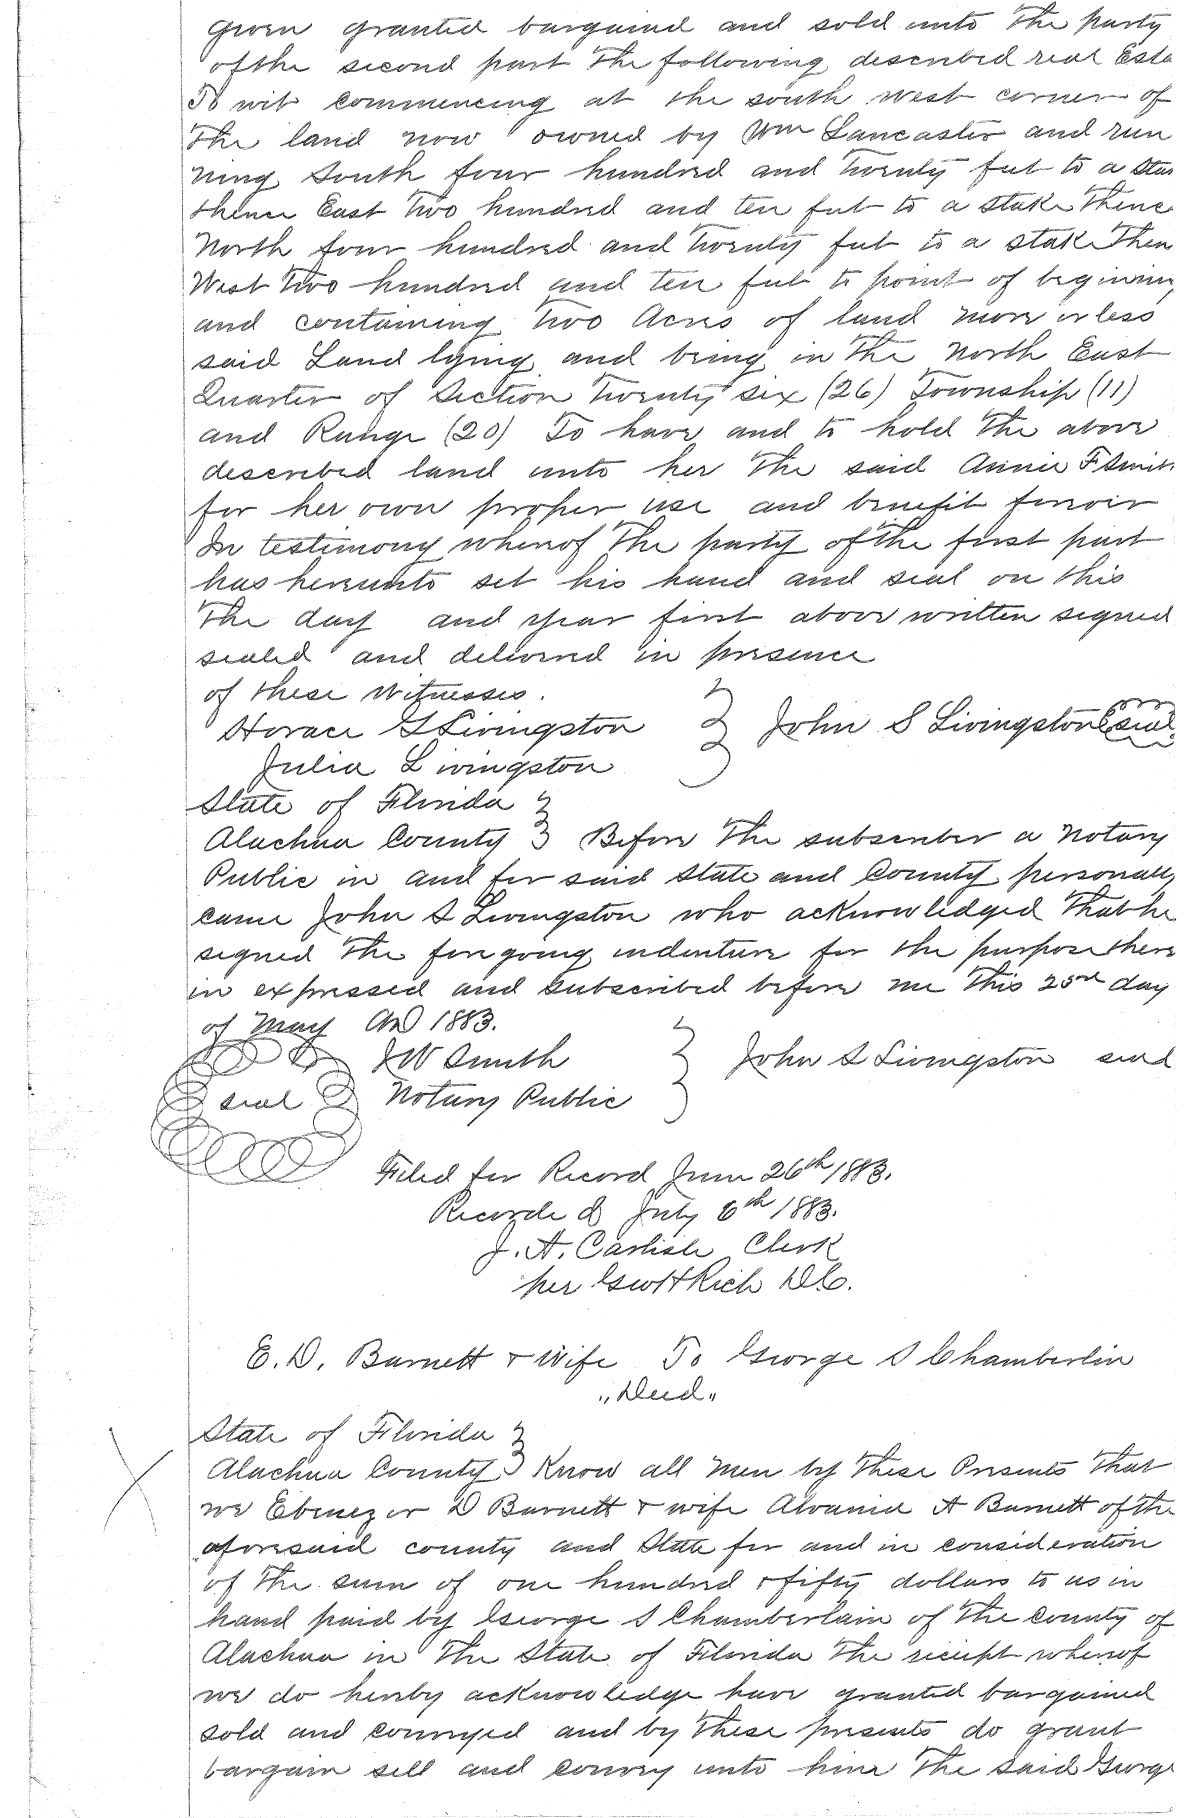 given granted bargained and sold unto the party
of the second part the following described real Esta
To wit commencing at the south west corner of
The land now owned by Wm Lancaster and run
ning South four hundred and Twenty feet to a sta
thence East Two hundred and ten feet to a stake Thenc
North four hundred and Twenty feet to a stake Then
West Two hundred and ten feet to point of beginning
and containing Two Acres of land more or less
said Land lying and being in The North East
Quarter of Section Twenty six (26) Township (11)
and Range (20) To have and to hold The above
described land unto her The said Annie F Smith
for her own proper use and benefit forever
In testimony whereof The party of the first part
has hereunto set his hand and seal on this
The day and year first above written signed
sealed and delivered in presence
of these Witnesses.
Horace S Livingston } John S Livingston seal
Julia Livingston
State of Florida }
Alachua County } Before The subscriber a Notary
Public in and for said state and County personally
came John S Livingston who acknowledged That he
signed The foregoing indenture for the purpose there
in expressed and subscribed before me This 23rd day
of May AD 1883.
JW Smith } John S Livingston seal
seal Notary Public
Filed for Record June 26th 1883.
Recorded July 6th 1883.
J. A. Carlisle Clerk
per Geo H Rich D.C.
E. D. Barnett & Wife To George S Chamberlin
"Deed"
State of Florida }
Alachua County } Know all Men by These Presents That
we Ebenezer D Barnett & wife Alvania A Barnett of the
aforesaid county and State for and in consideration
of The sum of one hundred & fifty dollars to us in
hand paid by George S Chamberlain of The County of
Alachua in The State of Florida The receipt whereof
we do hereby acknowledge have granted bargained
sold and conveyed and by These presents do grant
bargain sell and convey unto him The said George